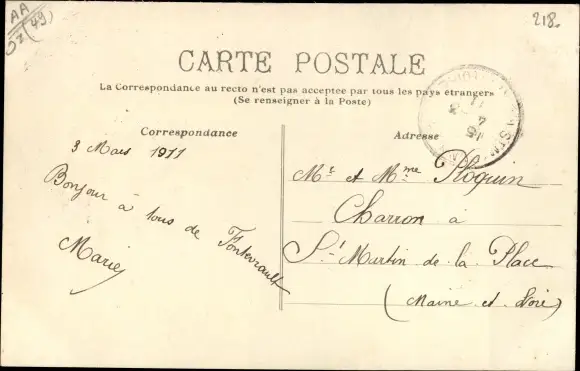 AA
(49)
218.
CARTE POSTALE
La Correspondance au recto n'est pas acceptée par tous les pays étrangers
(Se renseigner à la Poste)
Correspondance
3 Mars 1911
Bonjour à tous de Fontevrault
Marie
Adresse
Mr et Mme Ploquin
Charron à
St Martin de la Place
(Maine et Loire)